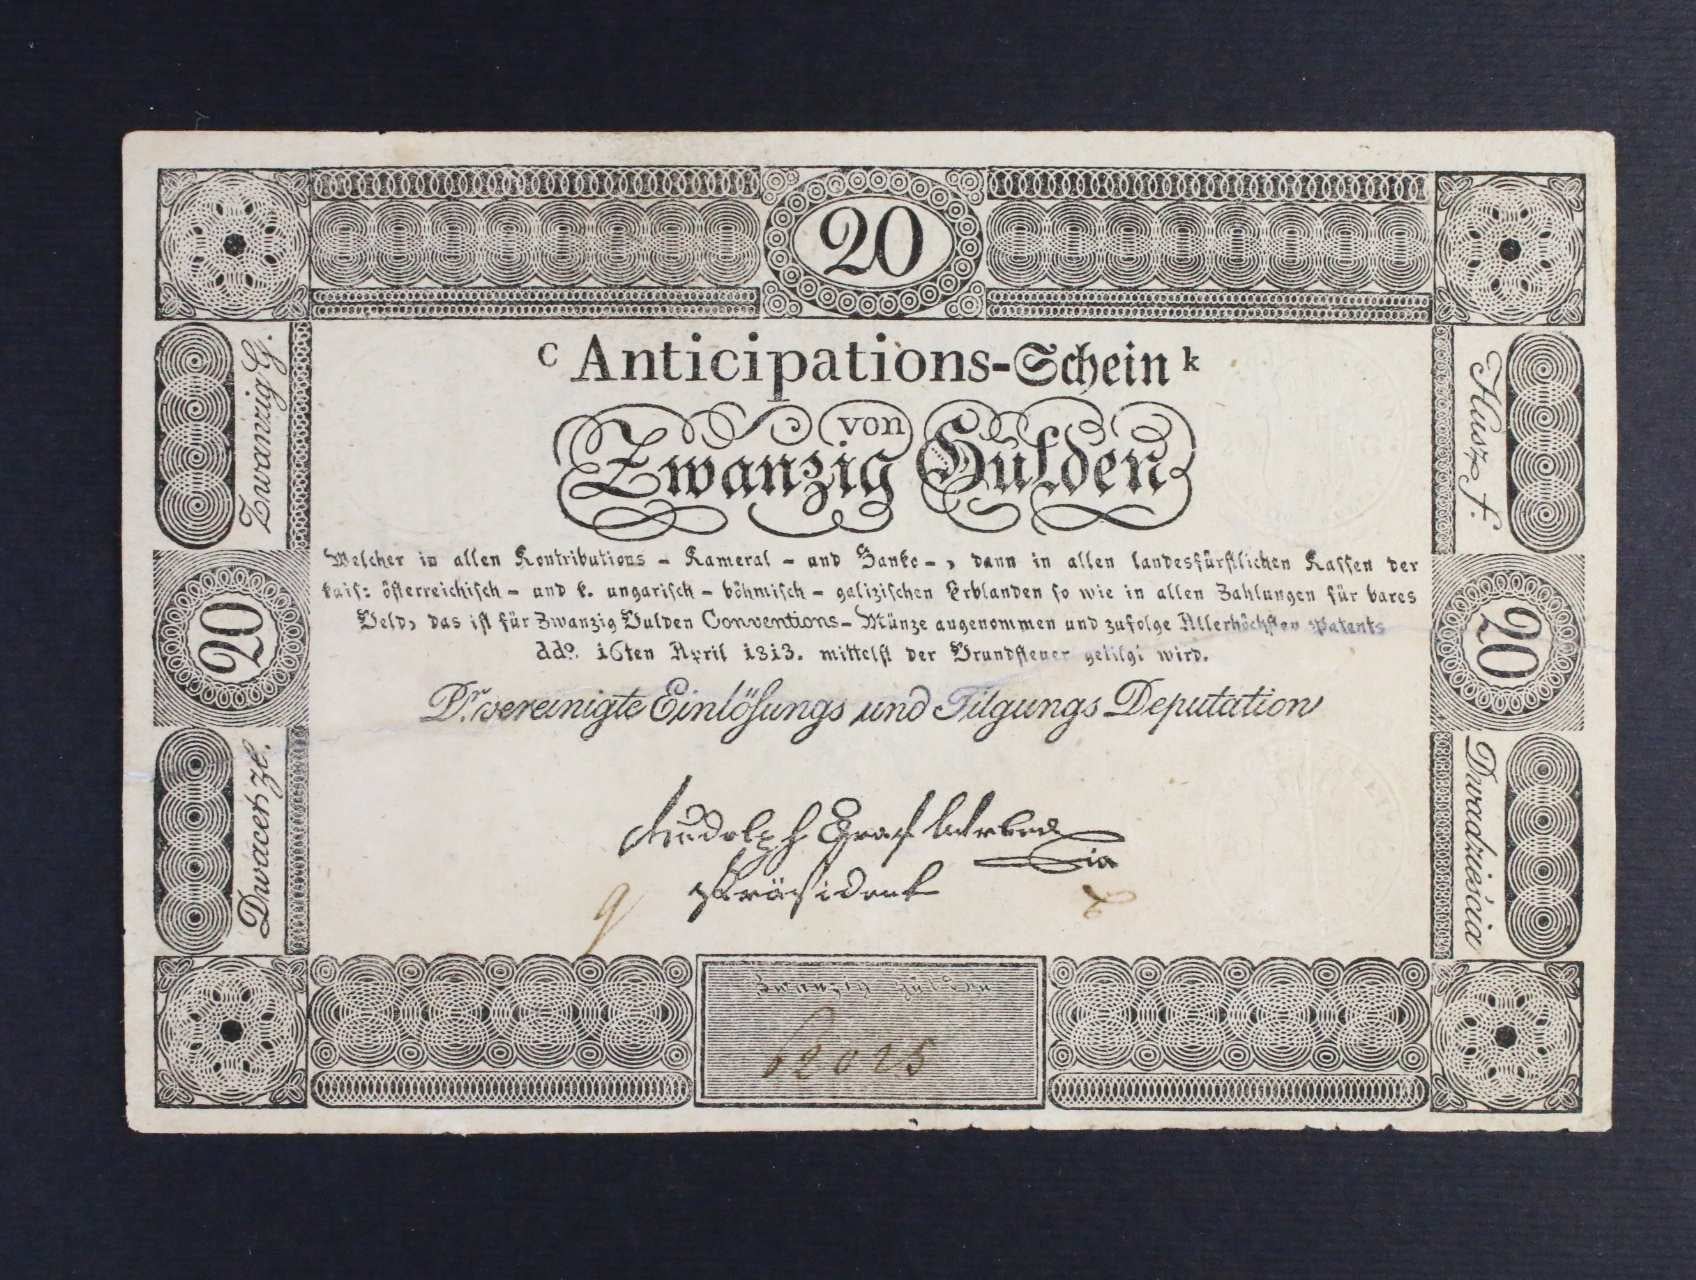 20
C Anticipations-Schein k
von
Zwanzig Gulden
Welcher in allen Kontributions - Kameral - und Banko -, dann in allen landesfürstlichen Kassen der
kais: österreichisch - und k. ungarisch - böhmisch - galizischen Erblanden so wie in allen Zahlungen für bares
Geld, das ist für Zwanzig Gulden Conventions - Münze angenommen und zufolge Allerhöchsten Patents
ddo. 16ten April 1813. mittelst der Grundsteuer getilgt wird.
Dr. vereinigte Einlösungs und Tilgungs Deputation
Rudolph Graf Wrbna
Präsident
Zwanzig Gulden
Zwanzig G.
20
Dwacet zl.
Husz f.
20
Dwadzieścia